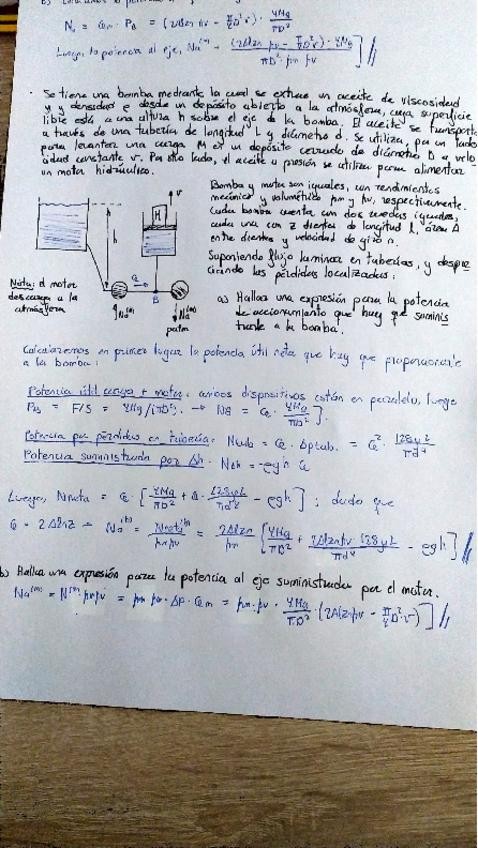 Nₐ = Qₘ · P_B = (2Alzn ρv − π/4 D²v) · 4Mg/πD²
Luego, la potencia al eje, Na⁽ᵐ⁾ = (2Alzn ρv − π/4 D²v) · 4Mg / πD² · ρm ρv ] //
· Se tiene una bomba mediante la cual se extrae un aceite de viscosidad
μ y densidad ρ desde un depósito abierto a la atmósfera, cuya superficie
libre está a una altura h sobre el eje de la bomba. El aceite se transporta
a través de una tubería de longitud L y diámetro d. Se utiliza, por un lado
para levantar una carga M en un depósito cerrado de diámetro D a velo
cidad constante v. Por otro lado, el aceite a presión se utiliza para alimentar
un motor hidráulico.
Bomba y motor son iguales, con rendimientos
mecánico y volumétrico ρm y ρv, respectivamente.
Cada bomba cuenta con dos ruedas iguales,
cada una con z dientes de longitud l, área A
entre dientes y velocidad de giro n.
Suponiendo flujo laminar en tuberías, y despre
ciando las pérdidas localizadas:
h
M
v
Q
B
Na⁽ᵇ⁾
Na⁽ᵐ⁾
patm
Nota: el motor
descarga a la
atmósfera
a) Hallar una expresión para la potencia
de accionamiento que hay que suminis
trarle a la bomba.
Calcularemos en primer lugar la potencia útil neta que hay que proporcionarle
a la bomba:
Potencia útil carga + motor: ambos dispositivos están en paralelo, luego
P_B = F/S = 4Mg/(πD²). → N_B = Q · 4Mg/πD² ].
Potencia por pérdidas en tubería: Ntub = Q · Δptub. = Q² · 128μL/πd⁴
Potencia suministrada por Δh: NΔh = −ρgh Q
Luego, Nneta = Q · [ 4Mg/πD² + Q · 128μL/πd⁴ − ρgh ] ; dado que
Q = 2Alnz → Na⁽ᵇ⁾ = Nneta/ρmρv = 2Alzn/ρm [ 4Mg/πD² + 2Alzn ρv 128μL/πd⁴ − ρgh ] //
b) Hallar una expresión para la potencia al eje suministrada por el motor.
Na⁽ᵐ⁾ = N⁽ᵐ⁾ · ρmρv = ρm ρv · Δp · Qm = ρm · ρv · 4Mg/πD² · (2Alzn ρv − π/4 D² · v) ] //